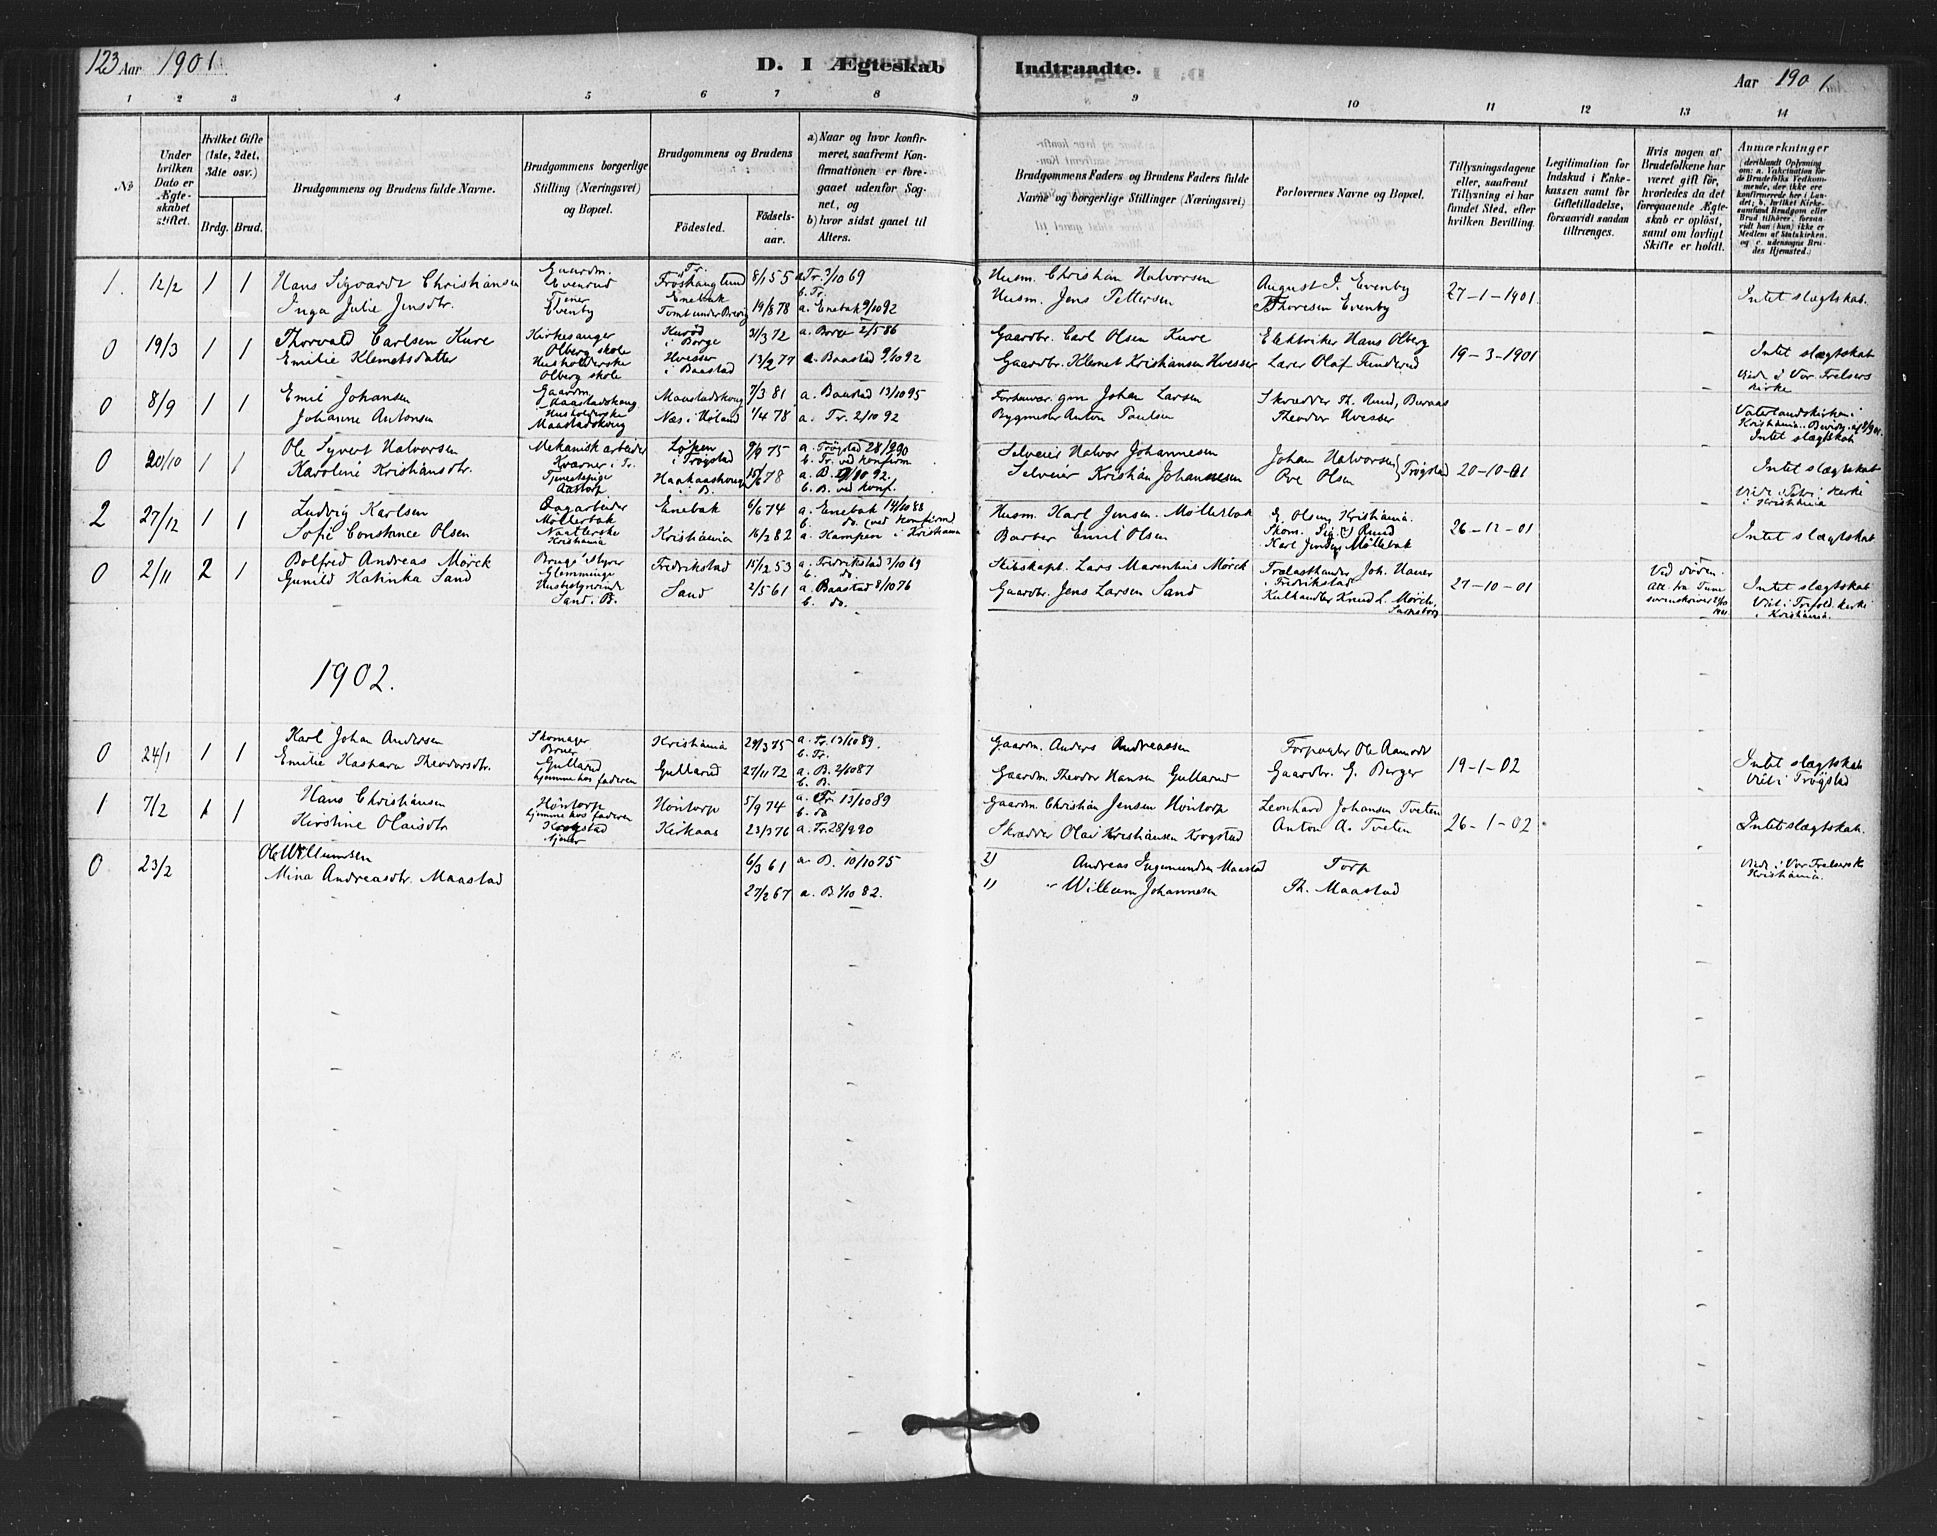 123 Aar 1901. D. I Ægteskab Indtraadte. Aar 1901
1 2 3 4 5 6 7 8 9 10 11 12 13 14
No
Under hvilken Dato er Ægteskabet stiftet.
Hvilket Gifte (1ste, 2det, 3die osv.)
Brdg. Brud.
Brudgommens og Brudens fulde Navne.
Brudgommens borgerlige Stilling (Næringsvei) og Bopæl.
Brudgommens og Brudens
Fødested. Fødselsaar.
a) Naar og hvor konfirmeret, saafremt Konfirmationen er foregaaet udenfor Sognet, og
b) hvor sidst ganel til Alters.
Brudgommens Faders og Brudens Faders fulde Navne og borgerlige Stillinger (Næringsvei)
Forlovernes Navne og Bopæl.
Tillysningsdagene eller, saafremt Tillysning ei har fundet Sted, efter hvilken Bevilling.
Legitimation for Indskud i Enkekassen samt for Giftetilladelse, forsaavidt saadan tiltrænges.
Hvis nogen af Brudefolkene har været gift før, hvorledes da det foregaaende Ægteskab er opløst, samt om lovligt Skifte er holdt.
Anmærkninger
(deriblandt Oplysning om: a. Vakcination for de Brudefolks Vedkommende, der ikke ere konfirmerede her i Landet; b. hvilket Kirkesamfund Brudgom eller Brud tilhører, forsaavidt han (hun) ikke er Medlem af Statskirken. og c. udensogns Brudes Hjemsted.)
1. 12/2 1 1 Hans Sigvardt Christiansen Gaardm. Evenrud Tr. Frøshaug lund 8/1 55 a Tr. 3/10 69 b. Tr. Husm. Christian Halvorsen August J. Evenby 27-1-1901. Intet slægtskab.
Inga Julie Jensdtr. Tjener Evenby Enebak Tomt under Brevig 19/8 78 a. Enebak 9/10 92 Husm. Jens Pettersen Thoresen Evenby
0 19/3 1 1 Thorvald Carlsen Kure Kirkesanger Olberg skole Kurød i Borge 31/3 72 a. Borge 2/5 86 Gaardbr. Carl Olsen Kure Elektriker Hans Olberg 19-3-1901 Intet slægtskab
Emilie Klemetsdatter Husholderske Olberg skole Hvesser i Baastad 13/2 77 a. Baastad 9/10 92 Gaardbr. Klemet Kristiansen Hvesser Lærer Olaf Funderud Vied i Vor Frelsers kirke
0 8/9 1 1 Emil Johansen Gaardm. Maastadskoug Maastadskoug 7/3 81 a. Baastad 13/10 95 Forhenv. gm Johan Larsen Skredder Th. Rund, Buraas
Johanne Antonsen Husholderske Maastadskoug Næs i Høland 1/4 78 a. Tr. 2/10 92 Bygmester Anton Paulsen Theodor Hvesser Vaterlandskirken i Kristiania. Intet slægtskab
0 20/10 1 1 Ole Syvert Halvorsen Mekanisk arbeider Kvarner i Tr. Løken i Trøgstad 9/9 75 a. Trøgstad 28/9 90 b. Tr. ved konfirm Selveier Halvor Johannesen Johan Halvorsen Trøgstad 20-10-01 Intet slægtskab
Karoline Kristiansdtr. Tjenestepige Aastorp Haakaashoug i B. 15/6 78 a. B. 9/10 92. b. B. ved konf. Selveier Kristian Johannesen Ove Olsen Vied i Petri kirke i Kristiania
2 27/12 1 1 Ludvig Karlsen Dagarbeider Møllerbak Enebak 6/6 74 a. Enebak 14/10 88 b. do. (ved konfirm) Husm. Karl Jensen. Møllerbak E. Olsen, Kristiania. 26-12-01 Intet slægtskab
Sofie Constance Olsen Naatlerske Kristiania Kristiania 16/2 82 a. Kampen i Kristiania Barber Emil Olsen Karl Jensen Møllebak
0 2/11 2 1 Bolfred Andreas Mørck Brugsstyrer Glemminge Fredrikstad 15/12 53 a. Fredrikstad 3/10 69 b. do. Skibskapt. Lars Marenius Mørck Trælasthander Joh. Hauer i Fredrikstad 27-10-01 Ved døden. Att. fra Tune sorenskriver 21/10 1901 Intet slægtskab
Gunild Katinka Sand Husbestyrerinde Sand. B. Sand 2/5 61 a. Baastad 8/10 76 b. do. Gaardbr. Jens Larsen Sand Kulhandler Knud L. Mørch, Sarpsborg Viet i Trefold. kirke i Kristiania.
1902.
0 24/1 1 1 Karl Johan Andersen Skomager Bruer Kristiania 29/3 75 a. Tr. 13/10 89. b. Tr. Gaardm. Anders Andreassen Forpagter Ole Aamodt 19-1-02 Intet slægtskab
Emilie Kaspara Theodorsdtr. Gullarud hjemme hos faderen Gullarud 27/11 72 a. B. 2/10 87 b. B. Gaardm. Theodor Hansen Gullarud Gaardbr. G. Berger Viet i Trøgstad
1 7/2 1 1 Hans Christiansen Hontorp hjemme hos faderen Hontorp 5/9 74 a. Tr. 13/10 89 b. do Gaardm. Christian Jensen Hontorp Leonhard Johansen Tveten 26-1-02 Intet slægtskab.
Kirstine Olaisdtr Krogstad tjener Kirkaas 23/3 76 a. Tr. 28/9 90 Skrædder Olai Kristiansen Krogstad Anton A. Tveten
0 23/2 Ole Willumsen 6/3 61 a. B. 10/10 75 2) Andreas Ingemundsen Maastad Torp Vied i Vor Frelsers K Kristiania.
Mina Andreasdtr. Maastad 27/2 67 a. B 1/10 82. 1) " Willum Johannesen Th. Maastad